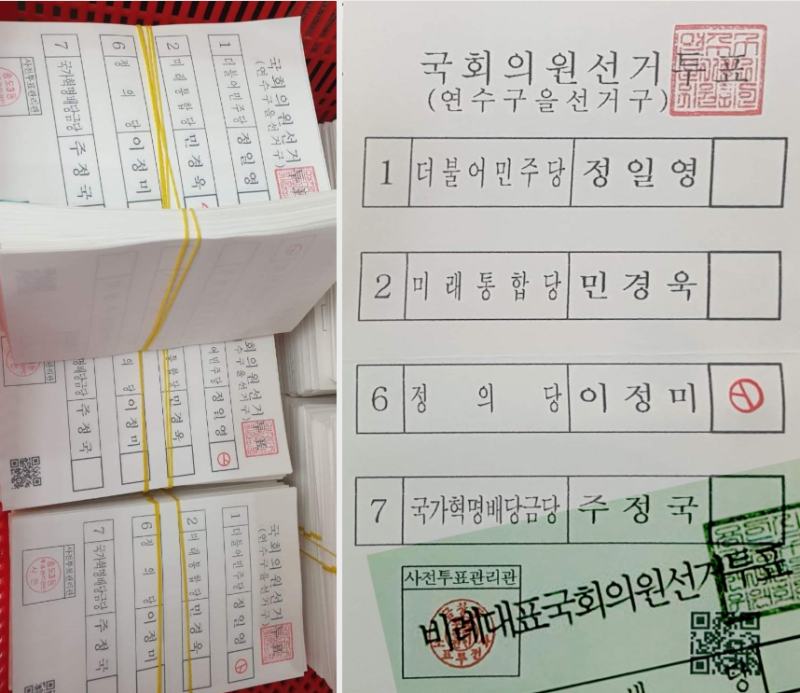 7 국가혁명배당금당 주정국
6 정의당 이정미
2 미래통합당 민경욱
1 더불어민주당 정일영
국회의원선거투표
(연수구을선거구)
사전투표관리관
7 국가혁명배당금당 주정국
6 정의당 이정미
2 미래통합당 민경욱
1 더불어민주당 정일영
국회의원선거투표
(연수구을선거구)
사전투표관리관
국회의원선거투표
(연수구을선거구)
1 더불어민주당 정일영
2 미래통합당 민경욱
6 정의당 이정미
7 국가혁명배당금당 주정국
사전투표관리관
비례대표국회의원선거투표